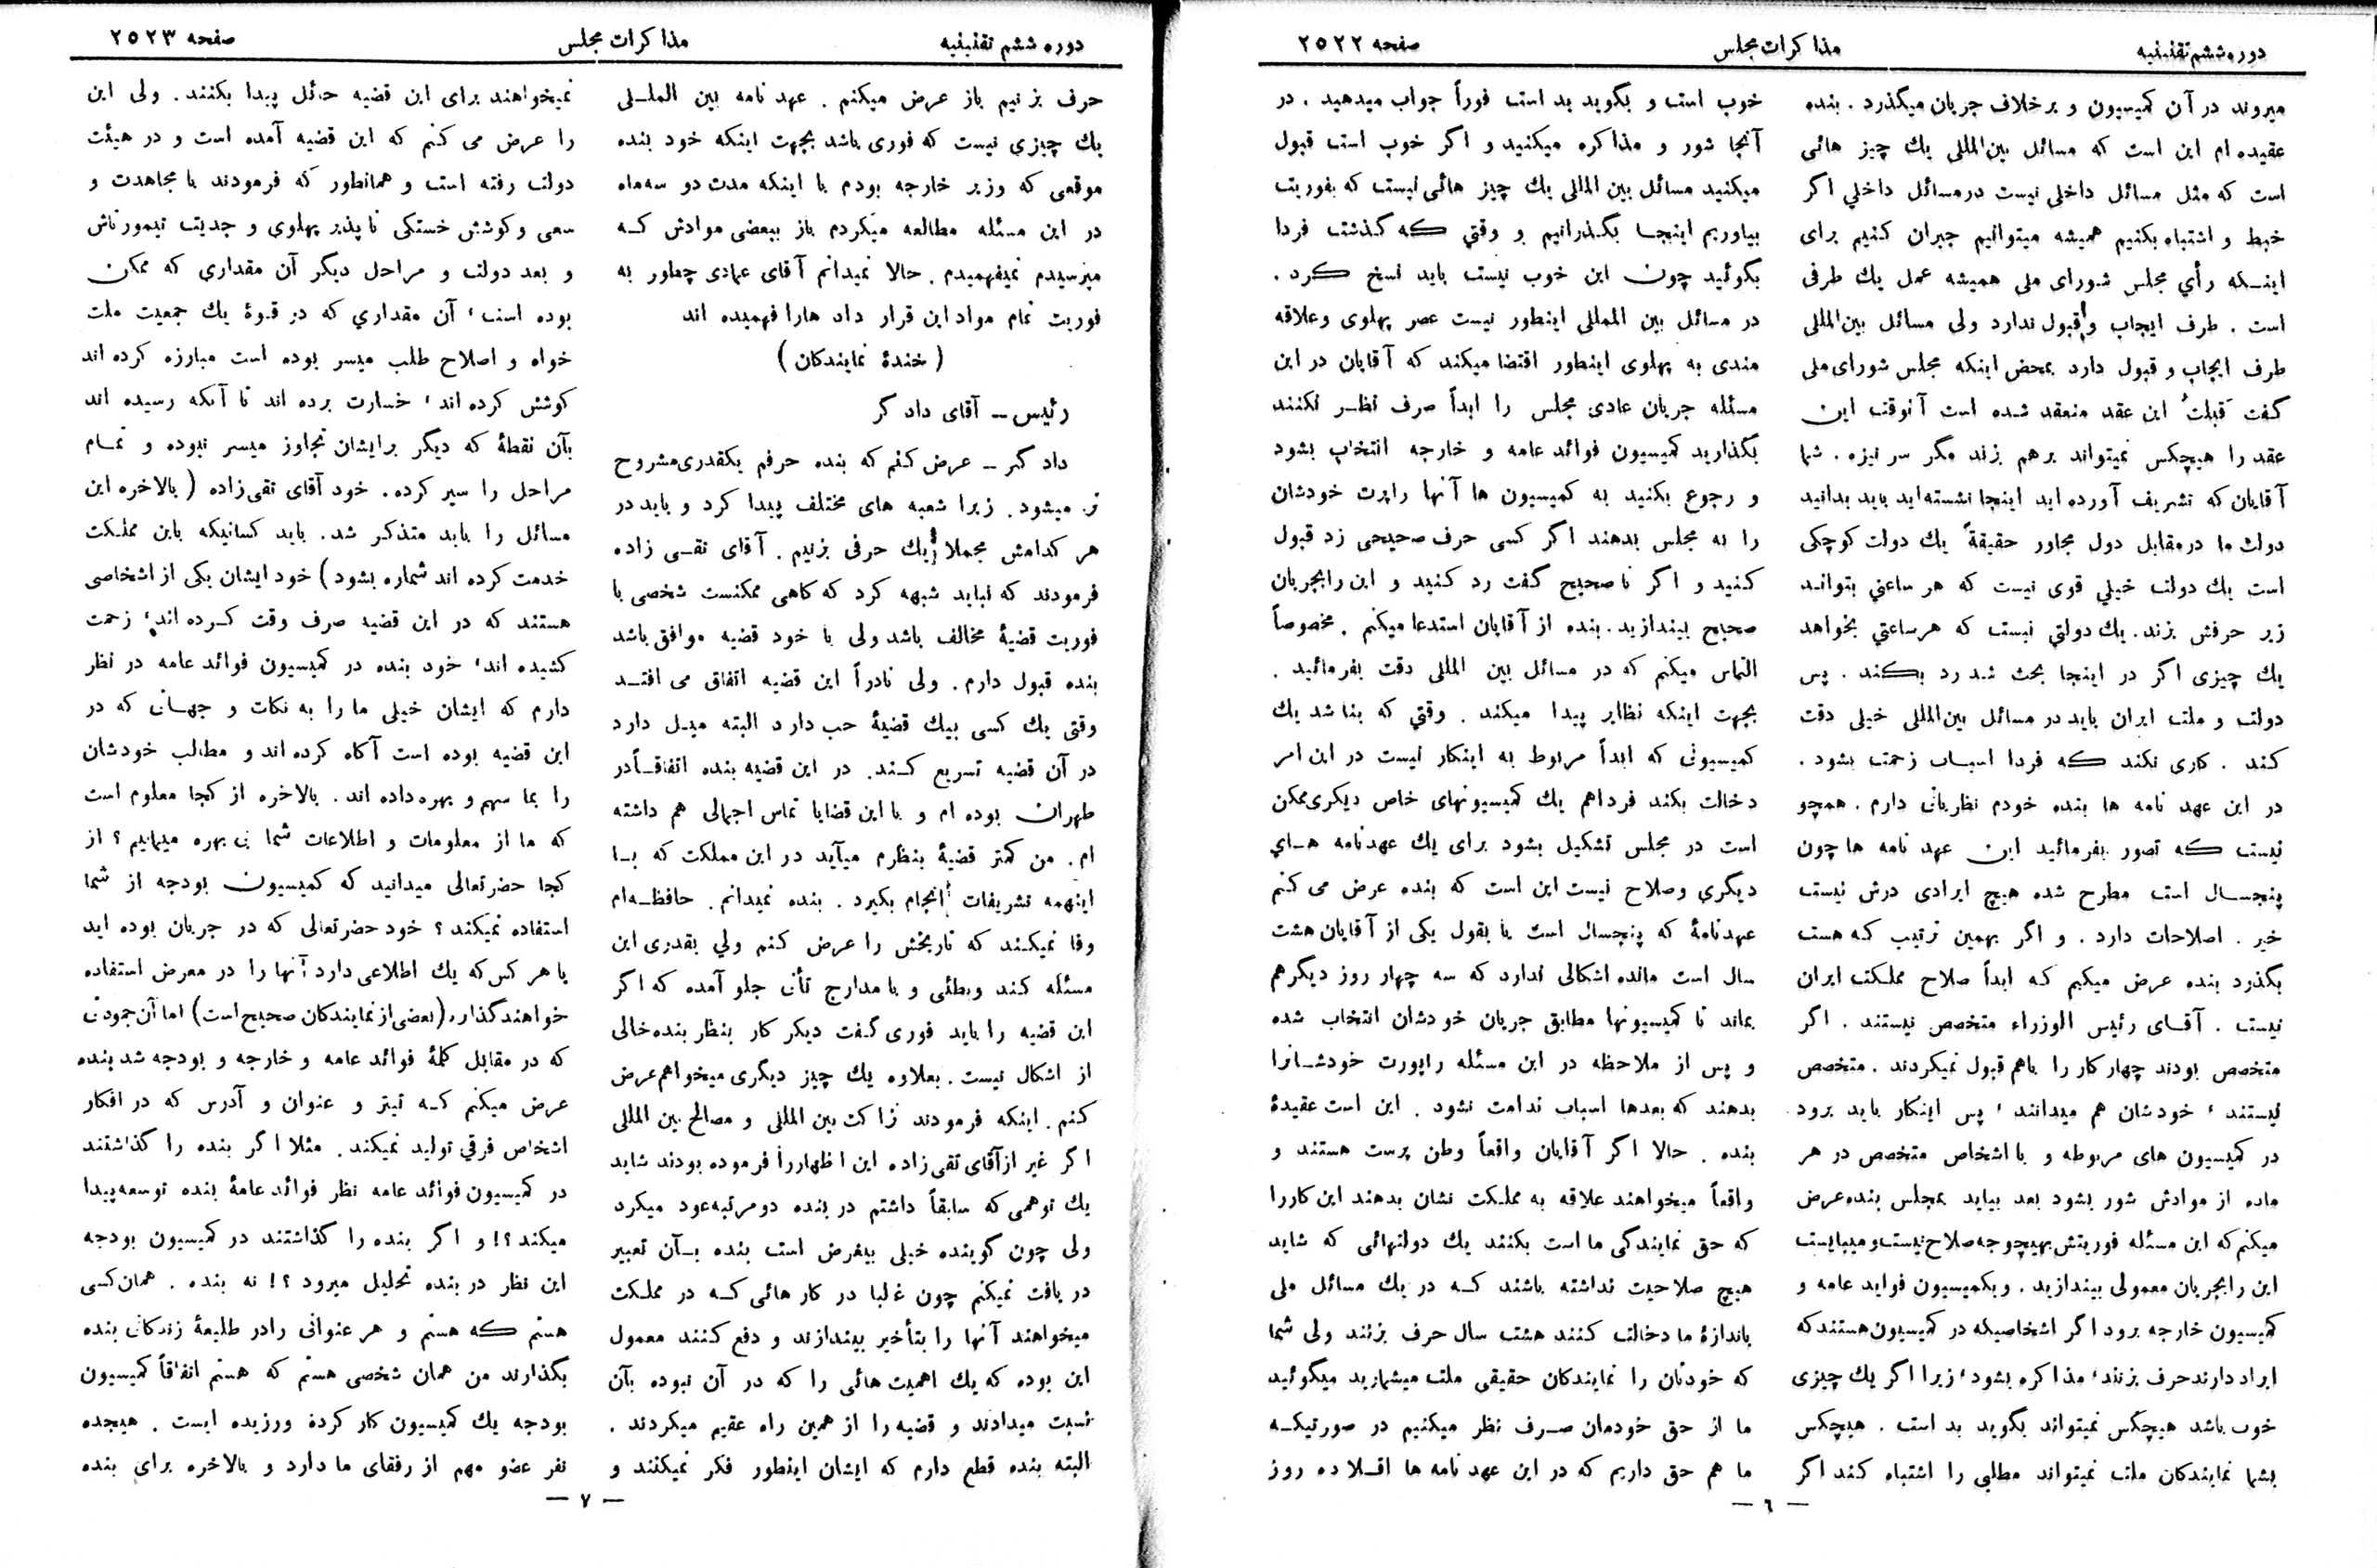 دوره ششم تقنینیه
مذاکرات مجلس
صفحه ۲۵۲۲
میروند در آن کمیسیون و برخلاف جریان میگذرد . بنده
عقیده ام این است که مسائل بین‌المللی یك چیز هائی
است که مثل مسائل داخلی نیست در مسائل داخلي اگر
خبط و اشتباه بکنیم همیشه میتوانیم جبران کنیم برای
اینـکه رأي مجلس شورای ملی همیشه عمل یك طرفی
است . طرف ایجاب و قبول ندارد ولی مسائل بین‌المللی
طرف ایجاب و قبول دارد بمحض اینکه مجلس شورای ملی
گفت قبلتُ این عقد منعقد شده است آنوقت این
عقد را هیچکس نمیتواند برهم بزند مگر سر نیزه . شما
آقایان که تشریف آورده اید اینجا نشسته اید باید بدانید
دولت ما در مقابل دول مجاور حقیقةً یك دولت کوچکی
است یك دولت خیلي قوی نیست که هر ساعتي بتوانـد
زیر حرفش بزند . یك دولتي نیست که هرساعتي بخواهد
یك چیزی اگر در اینجا بحث شد رد بکند . پس
دولت و ملت ایران باید در مسائل بین‌المللی خیلی دقت
کند . کاری نکند که فردا اسباب زحمت بشود .
در این عهد نامه ها بنده خودم نظریاتی دارم . همچو
نیست که تصور بفرمائید این عهد نامه ها چون
پنجسال است مطرح شده هیچ ایرادی درش نیست
خیر . اصلاحات دارد . و اگر بهمین ترتیب که هست
بگذرد بنده عرض میکنم که ابداً صلاح مملکت ایران
نیست . آقـای رئیس الوزراء متخصص نیستند . اگر
متخصص بودند چهار کار را باهم قبول نمیکردند . متخصص
نیستند ، خودشان هم میدانند ، پس اینکار باید برود
در کمیسیون های مربوطه و با اشخاص متخصص در هر
ماده از موادش شور بشود بعد بیاید بمجلس بنده عرض
میکنم که این مسئله فوریتش بهیچوجه صلاح نیست و میبایست
این را بجریان معمولی بیندازید . و بکمیسیون فواید عامه و
کمیسیون خارجه برود اگر اشخاصیکه در کمیسیون هستند که
ایراد دارند حرف بزنند ، مذاکره بشود ، زیرا اگر یك چیزی
خوب باشد هیچکس نمیتواند بگوید بد است . هیچکس
بشما نمایندکان ملت نمیتواند مطلبی را اشتباه کند اگر
خوب است و بگوید بد است فوراً جواب میدهید . در
آنجا شور و مذاکره میکنید و اگر خوب است قبول
میکنید مسائل بین المللی یك چیز هائی نیست که بفوریت
بیاوریم اینجـا بگـذرانیم و وقتي که گذشت فردا
بگوئید چون این خوب نیست باید نسخ کرد .
در مسائل بین المللی اینطور نیست عصر پهلوی و علاقه
مندی به پهلوی اینطور اقتضا میکند که آقایان در این
مسئله جریان عادی مجلس را ابداً صرف نظـر نکنند
بگذارید کمیسیون فوائد عامه و خارجه انتخاب بشود
و رجوع بکنید به کمیسیون ها آنها راپرت خودشان
را به مجلس بدهند اگر کسی حرف صحیحی زد قبول
کـنید و اگر ناصحیح گفت رد کنید و این را بجریان
صحیح بیندازید . بنده از آقایان استدعا میکنم . مخصوصاً
التماس میکنم که در مسائل بین المللی دقت بفرمائید .
بجهت اینکه نظایر پیدا میکند . وقتي که بنا شد یك
کمیسیونی که ابداً مربوط به اینکار نیست در این امر
دخالت بکند فرداهم یك کمیسیونهای خاص دیکری ممکن
است در مجلس تشکیل بشود برای یك عهدنامه هـای
دیگري وصلاح نیست این است که بنده عرض می کنم
عهدنامۀ که پنچسال است یا بقول یکی از آقایان هشت
سال است مانده اشکالی ندارد که سه چهار روز دیگرهم
بماند تا کمیسیونها مطابق جریان خودشان انتخاب شده
و پس از ملاحظه در این مسئله راپورت خودشـانرا
بدهند که بعدها اسباب ندامت نشود . این است عقیدۀ
بنده . حالا اگر آقایان واقعاً وطن پرست هستند و
واقعاً میخواهند علاقه به مملکت نشان بدهند این کاررا
که حق نمایندگی ما است بکنند یك دولتهائی که شاید
هیچ صلاحیت نداشته باشند کـه در یك مسائل ملی
باندازۀ ما دخالت کنند هشت سال حرف بزنند ولی شما
که خودتان را نمایندکان حقیقی ملت میشمارید میگوئید
ما از حق خودمان صـرف نظر میکنیم در صورتیکـه
ما هم حق داریم که در این عهد نامه ها اقـلا ده روز
— ٦ —
دوره ششم تقنینیه
مذاکرات مجلس
صفحه ۲۵۲۳
حرف بزنیم باز عرض میکنم . عهد نامه بین الملـلی
یك چیزی نیست که فوری باشد بجهت اینکه خود بنده
موقعی که وزیر خارجه بودم با اینکه مدت دو سه ماه
در این مسئله مطالعه میکردم باز ببعضی موادش کـه
میرسیدم نمیفهمیدم . حالا نمیدانم آقای عمادی چطور به
فوریت تمام مواد این قرار داد هارا فهمیده اند
( خندۀ نمایندکان )
رئیس ــ آقای داد گر
داد گر ــ عرض کنم که بنده حرفم یکقدری مشروح
تر میشود . زیرا شعبه های مختلف پیدا کرد و باید در
هر کدامش مجملا یك حرفی بزنیم . آقای تقـی زاده
فرمودند که نباید شبهه کرد که کاهی ممکنست شخصی با
فوریت قضیۀ مخالف باشد ولی با خود قضیه موافق باشد
بنده قبول دارم . ولی نادراً این قضیه اتفاق می افتـد
وقتی یك کسی بیك قضیۀ حب دارد البته میـل دارد
در آن قضیه تسریع کـند . در این قضیه بنده اتفاقـاً در
طهران بوده ام و با این قضایا تماس اجمالی هم داشته
ام . من کمتر قضیۀ بنظرم میآید در این مملکت که بـا
اینهمه تشریفات انجام بکیرد . بنده نمیدانم . حافظـه ام
وفا نمیکـند که تاریخش را عرض کنم ولي بقدری این
مسئله کند وبطئی و با مدارج تأنی جلو آمده که اگر
این قضیه را باید فوری گـفت دیکر کار بنظر بنده خالی
از اشکال نیست . بعلاوه یك چیز دیگری میخواهم عرض
کنم . اینکه فرمودند نزاکت بین المللی و مصالح بین المللی
اگر غیر از آقای تقی زاده این اظهاررا فرموده بودند شاید
یك توهمی که سابقاً داشتم در بنده دو مرتبه عود میکرد
ولی چون گوینده خیلی بیغرض است بنده بـآن تعبیر
دریافت نمیکنم چون غالبا در کار هائی کـه در مملکت
میخواهند آنها را بتأخیر بیندازند و دفع کنند معمول
این بوده که یك اهمیت هائی را که در آن نبوده بآن
نسبت میدادند و قضیه را از همین راه عقیم میکردند .
البته بنده قطع دارم که ایشان اینطور فکر نمیکنند و
نمیخواهند برای این قضیه حائل پیدا بکنند . ولی این
را عرض می کنم که این قضیه آمده است و در هیئت
دولت رفته است و همانطور که فرمودند با مجاهدت و
سعی و کوشش خستکی ناپذیر پهلوی و جدیت تیمورتاش
و بعد دولت و مراحل دیگر آن مقداری که ممکن
بوده است ، آن مقداري که در قـوۀ یك جمعیت ملت
خواه و اصلاح طلب میسر بوده است مبارزه کرده اند
کوشش کرده اند ، خسارت برده اند تا آنکه رسیده اند
بآن نقطۀ که دیگر برایشان تجاوز میسر نبوده و تمـام
مراحل را سیر کرده . خود آقای تقی زاده ( بالاخره این
مسائل را باید متذکر شد . باید کسانیکه باین مملـکت
خدمت کرده اند شماره بشود ) خود ایشان یکی از اشخاصی
هستند که در این قضیه صرف وقت کـرده اند ، زحمت
کشیده اند ، خود بنده در کمیسیون فوائد عامه در نظر
دارم که ایشان خیلی ما را به نکات و جهـاتی که در
این قضیه بوده است آکاه کرده اند و مطالب خودشان
را بما سهم و بهره داده اند . بالاخره از کجا معلوم است
که ما از معلومات و اطلاعات شما بی بهره میمانیم ؟ از
کجا حضرتعالی میدانید که کمیسیون بودجه از شما
استفاده نمیکند ؟ خود حضرتعالی که در جریان بوده اید
یا هر کس که یك اطلاعی دارد آنها را در معرض استفاده
خواهند گذارد ( بعضی از نمایندکان صحیح است ) اما آن جمودتی
که در مقابل کلمۀ فوائد عامه و خارجه و بودجه شد بنده
عرض میکنم کـه تیتر و عنوان و آدرس که در افکار
اشخاص فرقي تولید نمیکند . مثلا اگر بنده را گذاشتند
در کمیسیون فوائد عامه نظر فوائد عامۀ بنده توسعه پیدا
میکند ؟! و اگر بنده را گذاشتند در کمیسیون بودجه
این نظر در بنده تحلیل میرود ؟! نه بنده . همان کسی
هستم که هستم و هر عنوانی را در طلیعۀ زندکانی بنده
بگذارند من همان شخصی هستم که هستم اتفاقاً کمیسیون
بودجه یك کمیسیون کار کرده ورزیده ایست . هیجده
نفر عضو مهم از رفقای ما دارد و بالاخره برای بنده
— ۷ —